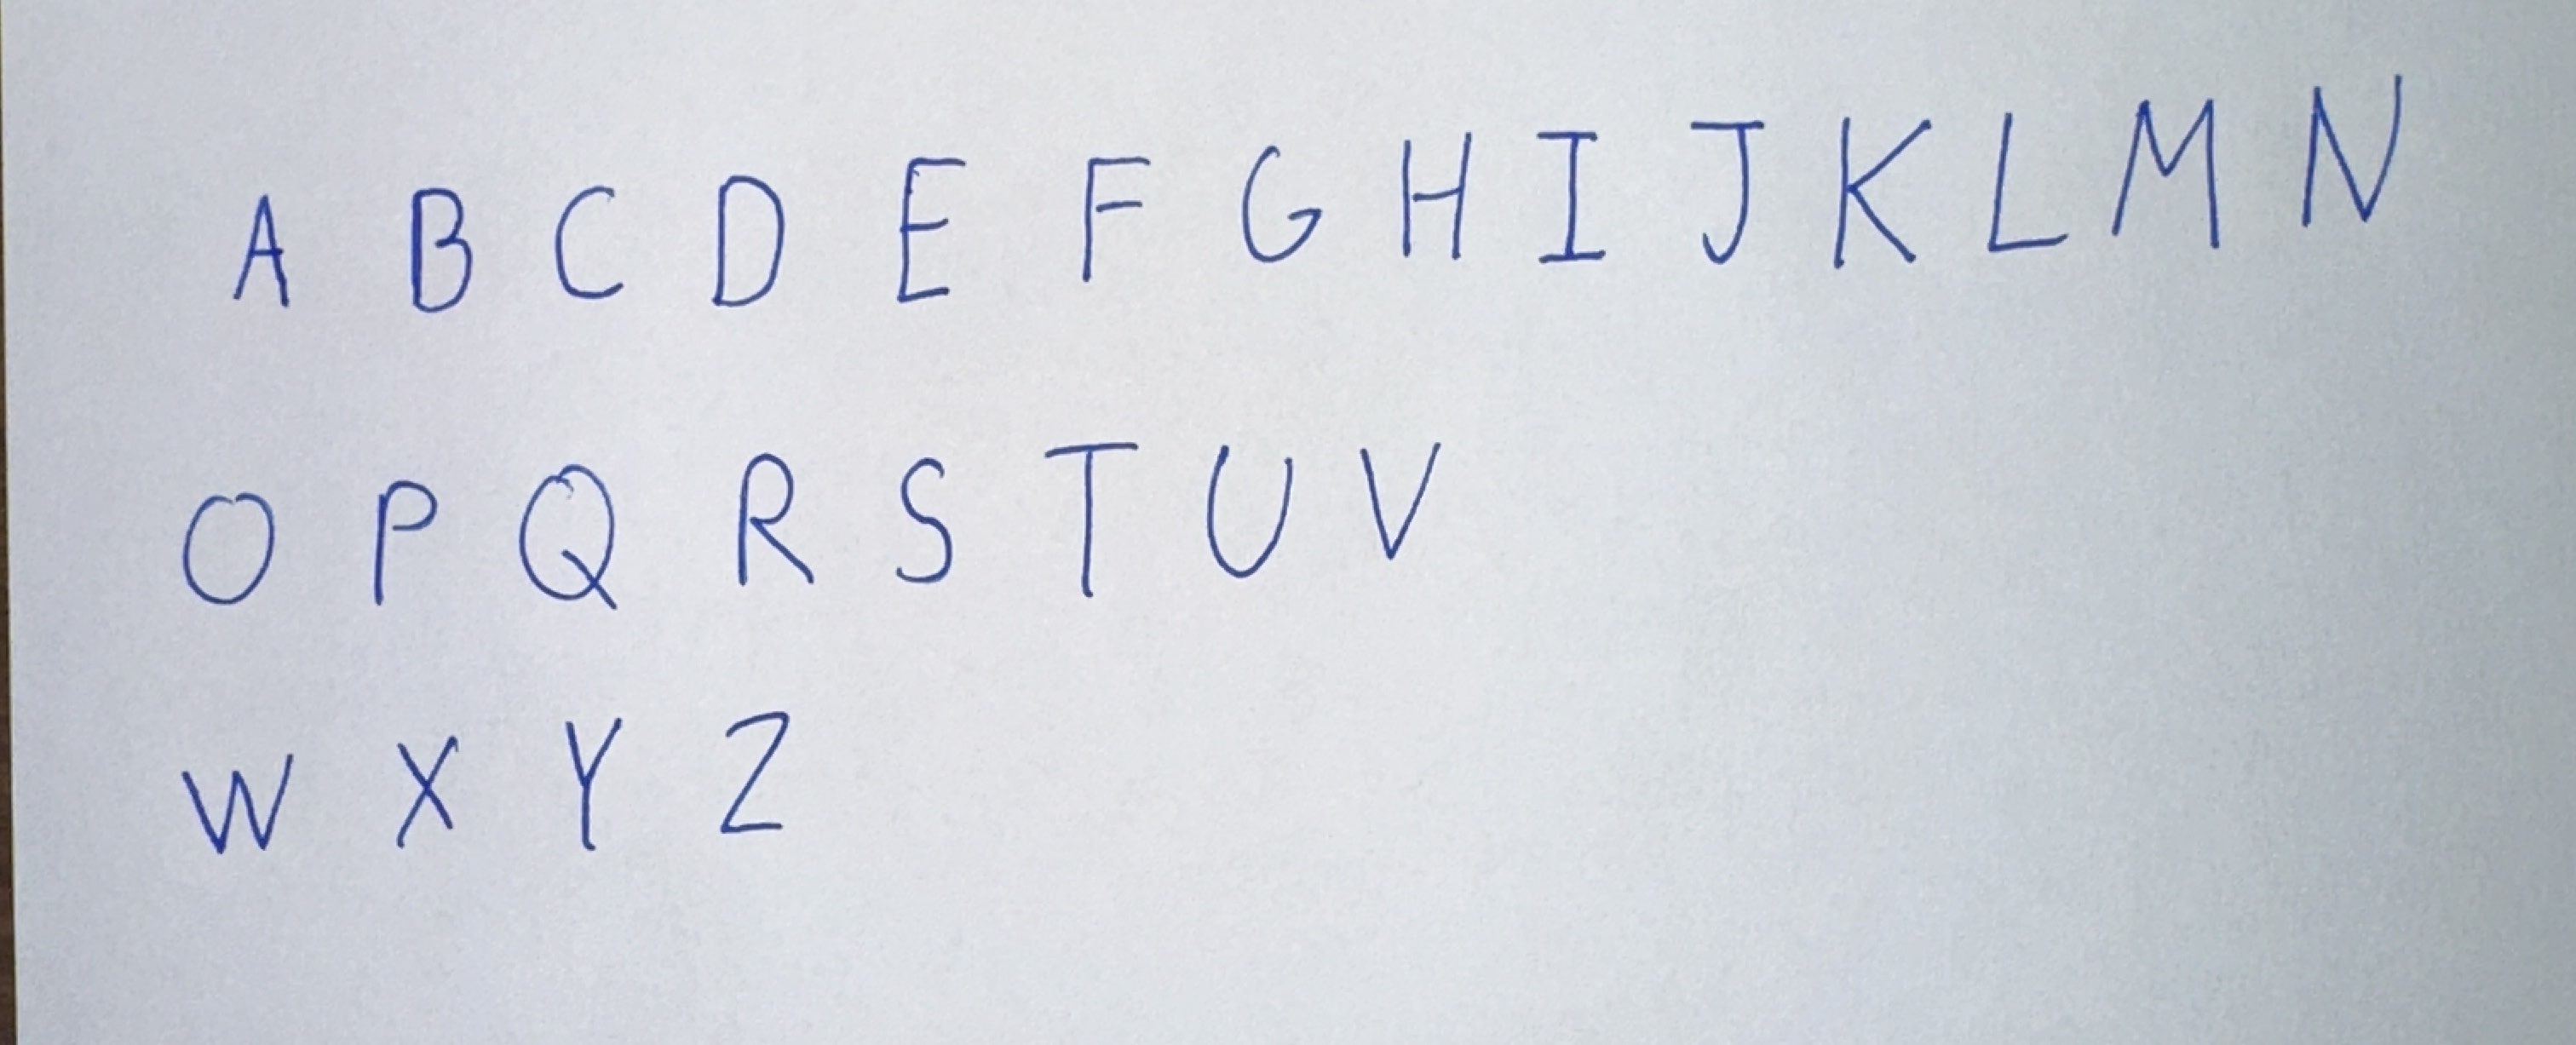 A B C D E F G H I J K L M N
O P Q R S T U V
W X Y Z